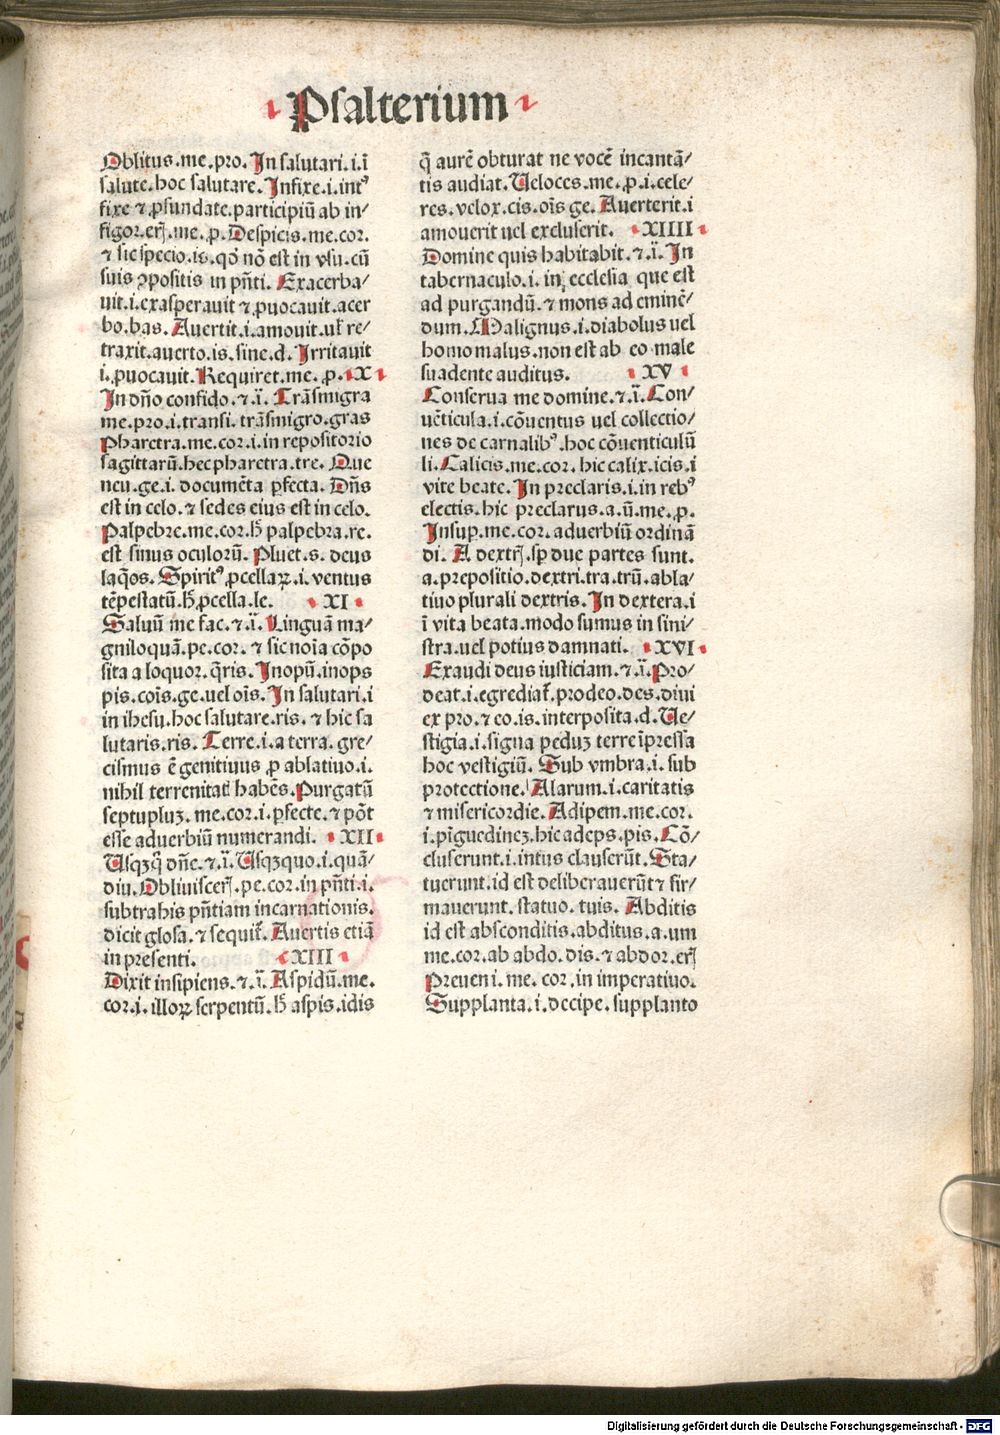 Psalterium
Oblitus.me.pro. In salutari.i.ī
salute.hoc salutare. Infixe.i.intꝰ
fixe ⁊ ꝓfundate.participiū ab in⸗
figor.erꝭ.me.p. Despicis.me.cor.
⁊ sic specio.is.qđ nō est in vsu.cū
suis ↄpositis in pn̄ti. Exacerba⸗
uit.i.exasperauit ⁊ ꝓuocauit.acer
bo.bas. Auertit.i.amouit.ul̄ re⸗
traxit.auerto.is.sine.d. Irritauit
i.ꝓuocauit. Requiret.me. p. X
In dn̄o confido.⁊.c̄. Trāsmigra
me.pro.i.transi.trāsmigro.gras
Pharetra.me.cor.i.in repositorio
sagittarū.hec pharetra.tre. Que
neu.ge.i. documēta ꝑfecta. Dn̄s
est in celo.⁊ sedes eius est in celo.
Palpebre.me.cor.h̄ palpebra.re.
est sinus oculorū. Pluet.s. deus
laq̄os. Spiritꝰ ꝓcellaꝝ.i.ventus
tēpestatū.h̄ ꝓcella.le. XI
Saluū me fac.⁊.c̄. Linguā ma⸗
gniloquā.pe.cor.⁊ sic noīa cōpo
sita a loquor.q̄ris. Inopū.inops
pis.cōis.ge.uel oīs. In salutari.i
in ihesu.hoc salutare.ris.⁊ hic sa
lutaris.ris. Terre.i.a terra. gre⸗
cismus ē genitiuus ꝓ ablatiuo.i.
nihil terrenitatꝭ habēs. Purgatū
septupluꝫ. me.cor.i.ꝑfecte.⁊ pōt
esse aduerbiū numerandi. XII
Usqꝫq̄ dn̄e.⁊.c̄. Usqꝫquo.i.quā⸗
diu. Obliuiscerꝭ.pe.cor.in pn̄ti.i.
subtrahis pn̄tiam incarnationis.
dicit glosa.⁊ sequit᷑. Auertis etiā
in presenti. XIII
Dixit insipiens.⁊.c̄. Aspidū.me.
cor.i.illoꝝ serpentū.h̄ aspis.idis
q̄ aurē obturat ne vocē incantā⸗
tis audiat. Veloces.me.p.i.cele⸗
res.velox.cis.oīs ge. Auerterit.i
amouerit uel excluserit. XIIII
Domine quis habitabit.⁊.c̄. In
tabernaculo.i.in ecclesia que est
ad purgandū.⁊ mons ad eminē⸗
dum. Malignus.i.diabolus uel
homo malus.non est ab eo male
suadente auditus. XV
Conserua me domine.⁊.c̄. Con⸗
uēticula.i.cōuentus uel collectio⸗
nes de carnalibꝰ.hoc cōuenticulū
li. Calicis.me.cor.hic calix.icis.i
vite beate. In preclaris.i.in rebꝰ
electis.hic preclarus.a.ū.me.p.
Insuꝑ.me.cor.aduerbiū ordinā
di. A dextrꝭ.sꝑ due partes sunt.
a.prepositio.dextri.tra.trū.abla⸗
tiuo plurali dextris. In dextera.i
ī vita beata.modo sumus in sini⸗
stra.uel potius damnati. XVI
Exaudi deus iusticiam.⁊.c̄. Pro⸗
deat.i.egrediat᷑.prodeo.des.diui
ex pro.⁊ eo.is.interposita.d. Ve⸗
stigia.i.signa peduꝫ terre īpressa
hoc vestigiū. Sub vmbra.i.sub
protectione. Alarum.i.caritatis
⁊ misericordie. Adipem.me.cor.
i.pīguedineꝫ.hic adeps.pis. Cō⸗
cluserunt.i.intus clauserūt. Sta⸗
tuerunt.id est deliberauerūt ⁊ fir⸗
mauerunt.statuo.tuis. Abditis
id est absconditis.abditus.a.um
me.cor.ab abdo.dis.⁊ abdor.erꝭ
Preueni.me.cor.in imperatiuo.
Supplanta.i.decipe.supplanto
Digitalisierung gefördert durch die Deutsche Forschungsgemeinschaft - DFG